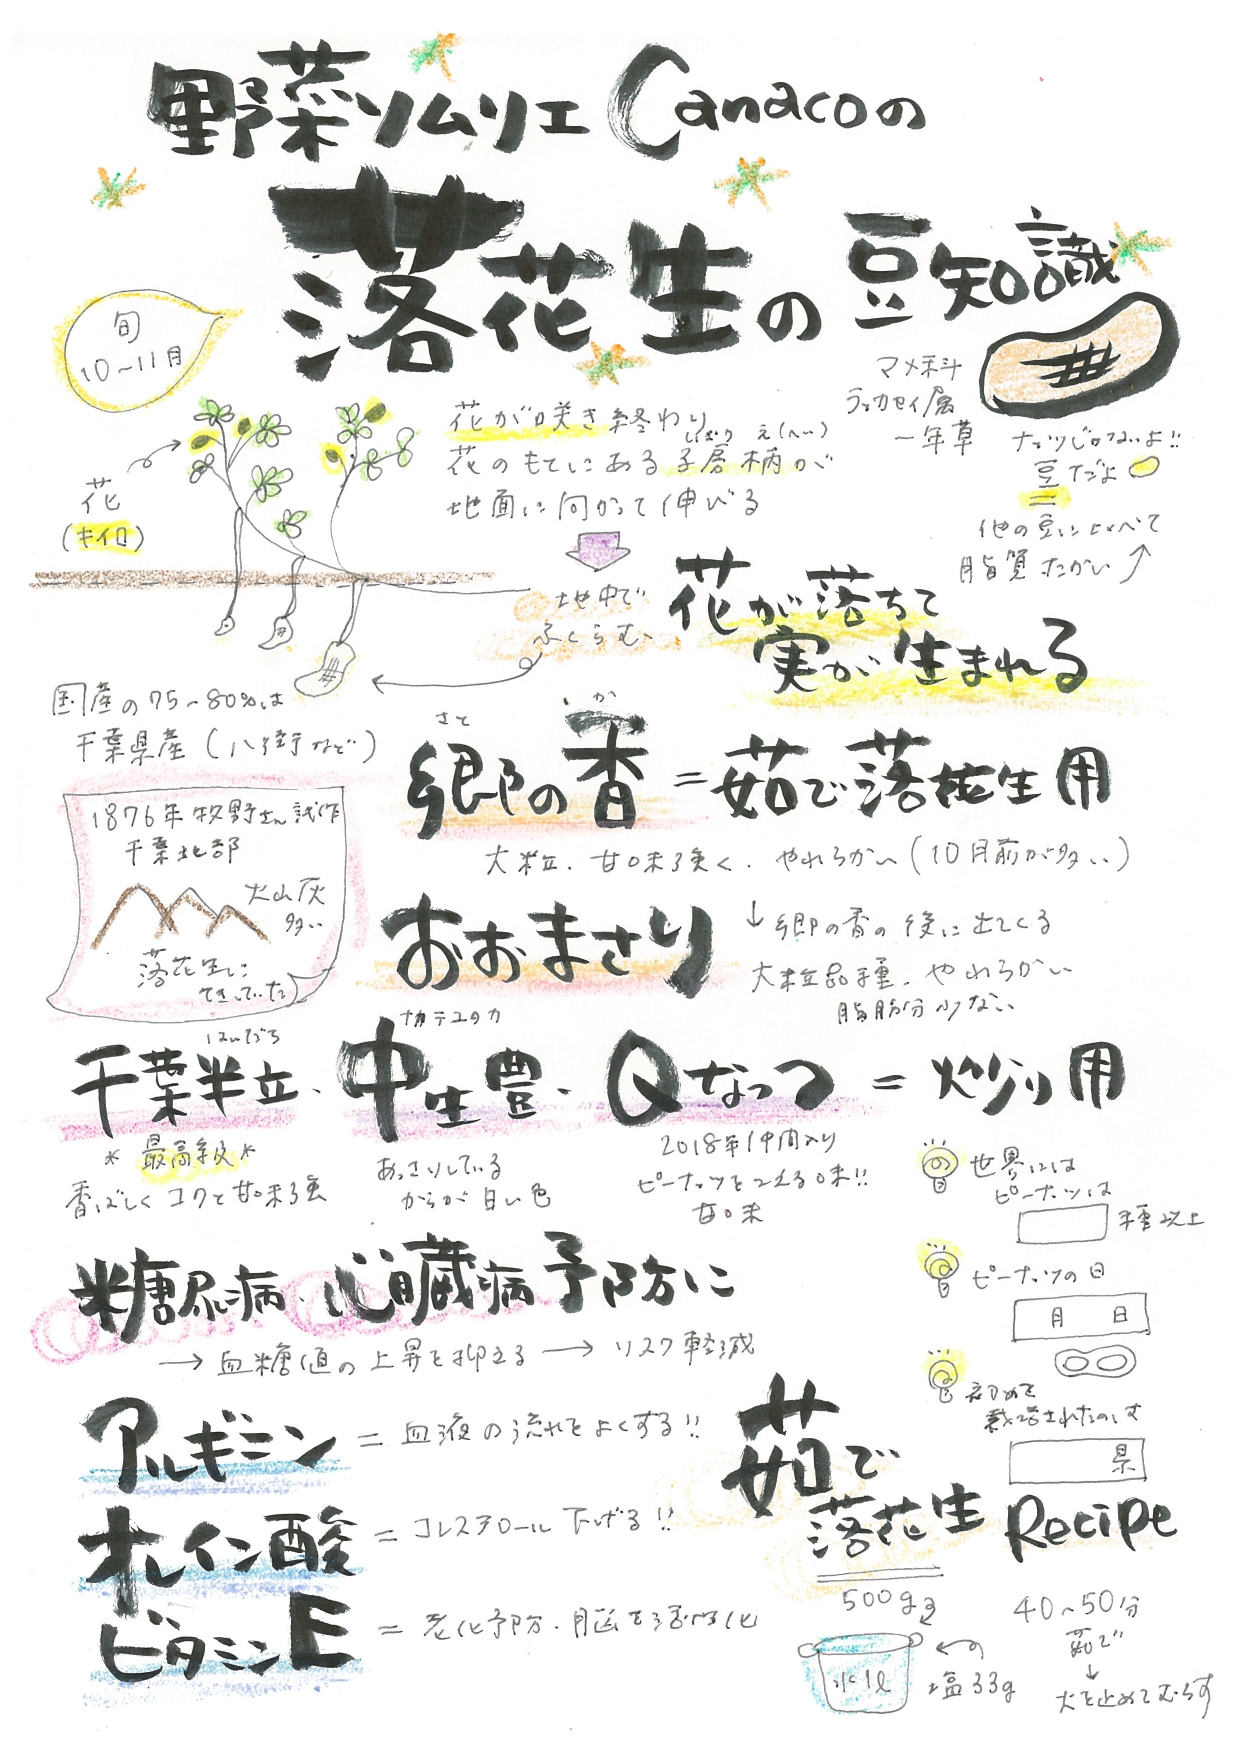 野菜ソムリエCanacoの
落花生の豆知識
旬
10〜11月
マメ科
ラッカセイ属
一年草
ナッツじゃないよ!!
豆だよ
他の豆に比べて
脂質たかい
花
(キイロ)
花が咲き終わり
しぼう え(へい)
花のもとにある子房柄が
地面に向かって伸びる
地中で
ふくらむ
花が落ちて
実が生まれる
国産の75〜80%は
千葉県産(八街など)
1876年牧野さん試作
千葉北部
火山灰
多い
落花生に
てきしていた
さと か
郷の香=茹で落花生用
大粒、甘味強く、やわらかい(10月前が多い)
おおまさり
↓郷の香の後に出てくる
大粒品種、やわらかい
脂肪分少ない
はんだち ナカテユタカ
千葉半立・中生豊・Qなっつ=炒り用
*最高級*
香ばしくコクと甘味強
あっさりしている
からが白い色
2018年仲間入り
ピーナッツをこえる味!!
甘味
世界には
ピーナッツは
種以上
ピーナッツの日
月 日
初めて
栽培されたのは
県
糖尿病・心臓病予防に
→血糖値の上昇を抑える→リスク軽減
アルギニン=血液の流れをよくする!!
オレイン酸=コレステロール下げる!!
ビタミンE=老化予防・脳を活性化
茹で
落花生 Recipe
500g
水1ℓ
塩33g
40〜50分
茹で
↓
火を止めてむらす